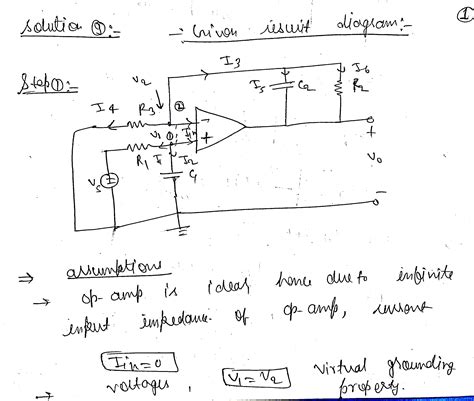 ①
solution ①:- :- Given circuit diagram:-
Step①:-
V2
I3
I4
R3
②
I5
C2
I6
R2
-
V1
①
Iin
+
R1
I1
I2
C1
Vs
+
V0
-
⇒ assumptions
→ op-amp is ideal hence due to infinite
input impedance of op-amp, current
Iin=0
→ voltages, V1=V2 virtual grounding
property.